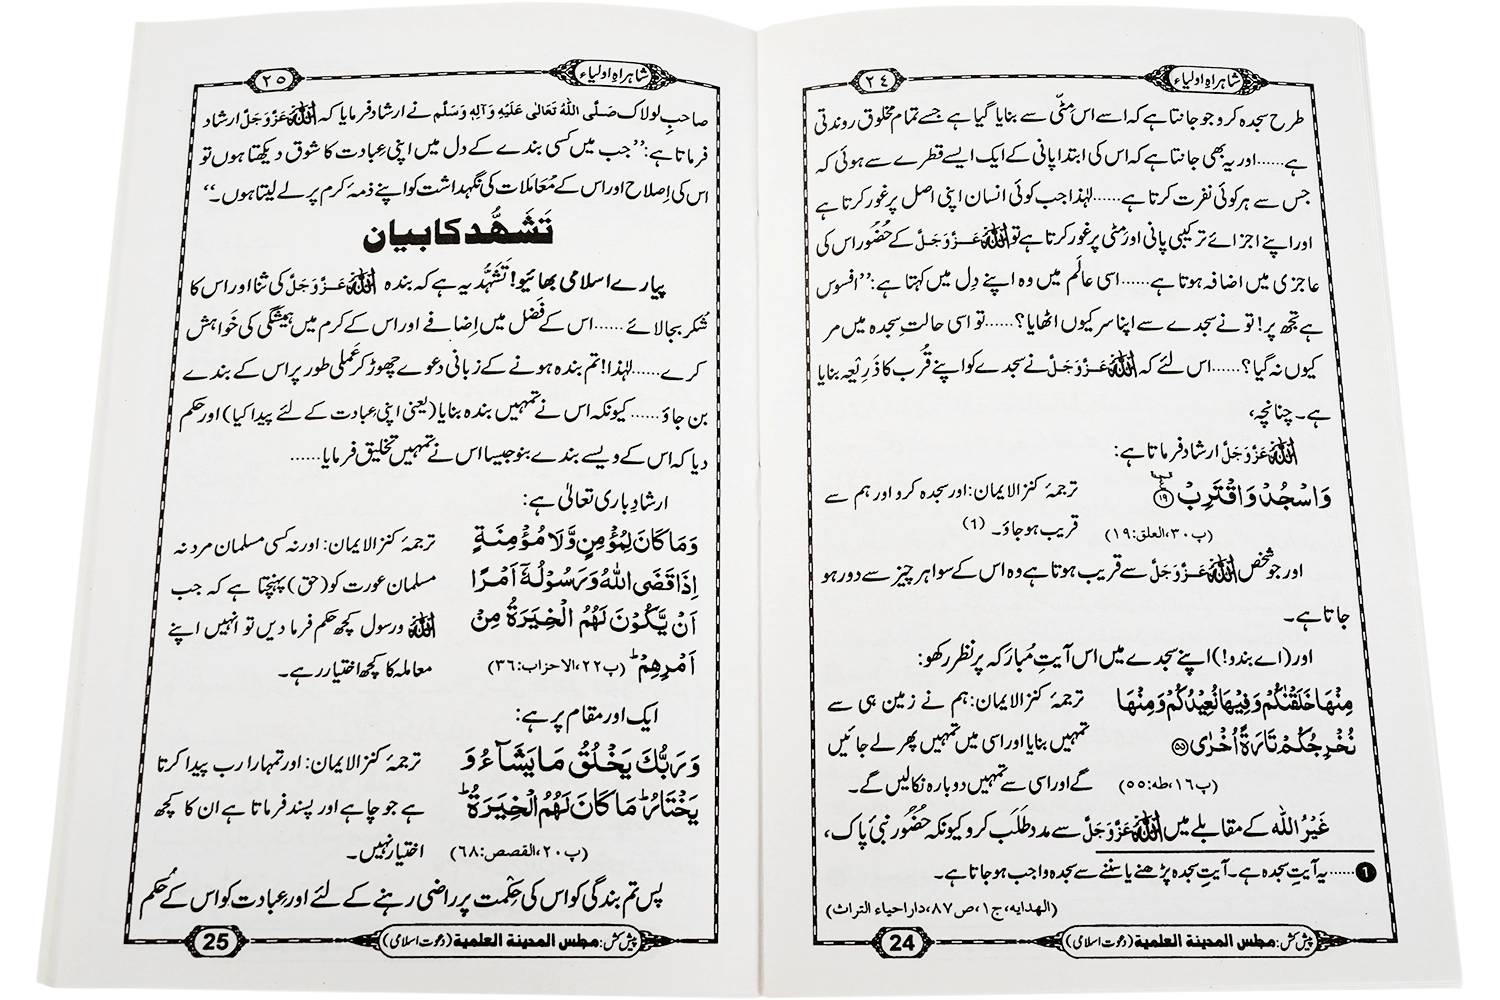 شاہراہِ اولیاء
٢٤
طرح سجدہ کرو جو جانتا ہے کہ اسے اس مٹّی سے بنایا گیا ہے جسے تمام مخلوق روندتی
ہے......اور یہ بھی جانتا ہے کہ اس کی ابتدا پانی کے ایک ایسے قطرے سے ہوئی کہ
جس سے ہر کوئی نفرت کرتا ہے......لہٰذا جب کوئی انسان اپنی اصل پر غور کرتا ہے
اور اپنے اجزائے ترکیبی پانی اور مٹی پر غور کرتا ہے تو اللہ عَزَّوَجَلَّ کے حُضُور اس کی
عاجزی میں اضافہ ہوتا ہے......اسی عالَم میں وہ اپنے دِل میں کہتا ہے:’’افسوس
ہے تجھ پر! تو نے سجدے سے اپنا سر کیوں اٹھایا؟......تو اسی حالتِ سجدہ میں مر
کیوں نہ گیا؟......اس لئے کہ اللہ عَزَّوَجَلَّ نے سجدے کو اپنے قُرب کا ذَرِیْعہ بنایا
ہے۔ چنانچہ،
اللہ عَزَّوَجَلَّ ارشاد فرماتا ہے:
وَاسْجُدْ وَاقْتَرِبْ ﴿۱۹﴾ ترجمۂ کنز الایمان: اور سجدہ کرو اور ہم سے
(پ۳۰،العلق:۱۹) قریب ہو جاؤ۔ (1)
اور جو شخص اللہ عَزَّوَجَلَّ سے قریب ہوتا ہے وہ اس کے سوا ہر چیز سے دور ہو
جاتا ہے۔
اور (اے بندو!) اپنے سجدے میں اس آیتِ مُبارَکہ پر نظر رکھو:
مِنْهَا خَلَقْنٰكُمْ وَفِيْهَا نُعِيْدُكُمْ وَمِنْهَا ترجمۂ کنز الایمان: ہم نے زمین ہی سے
نُخْرِجُكُمْ تَارَةً اُخْرٰى ﴿۵۵﴾ تمہیں بنایا اور اسی میں تمہیں پھر لے جائیں
(پ۱۶،طہ:۵۵) گے اور اسی سے تمہیں دوبارہ نکالیں گے۔
غَیْرُ اللہ کے مقابلے میں اللہ عَزَّوَجَلَّ سے مدد طَلَب کرو کیونکہ حُضُور نبیٔ پاک،
1......یہ آیتِ سجدہ ہے۔ آیتِ سجدہ پڑھنے یا سننے سے سجدہ واجب ہو جاتا ہے۔
(الهدايه،ج۱،ص۸۷،دار احياء التراث)
پیش کش: مجلس المدینة العلمية (دعوتِ اسلامی)
24
شاہراہِ اولیاء
٢٥
صاحبِ لولاک صَلَّی اللّٰہُ تَعَالٰی عَلَیْہِ وَآلِہٖ وَسَلَّم نے ارشاد فرمایا کہ اللہ عَزَّوَجَلَّ ارشاد
فرماتا ہے:’’جب میں کسی بندے کے دل میں اپنی عِبادت کا شوق دیکھتا ہوں تو
اس کی اِصلاح اور اس کے مُعاملات کی نگہداشت کو اپنے ذمہ کرم پر لے لیتا ہوں۔‘‘
تَشَهُّد کا بیان
پیارے اسلامی بھائیو! تَشَہُّد یہ ہے کہ بندہ اللہ عَزَّوَجَلَّ کی ثنا اور اس کا
شُکر بجا لائے......اس کے فَضل میں اِضافے اور اس کے کرم میں ہمیشگی کی خَواہش
کرے......لہٰذا! تم بندہ ہونے کے زبانی دعوے چھوڑ کر عَملی طور پر اس کے بندے
بن جاؤ......کیونکہ اس نے تمہیں بندہ بنایا (یعنی اپنی عِبادت کے لئے پیدا کیا) اور حکم
دیا کہ اس کے ویسے بندے بنو جیسا اس نے تمہیں تخلیق فرمایا......
ارشادِ باری تعالیٰ ہے:
وَمَا كَانَ لِمُؤْمِنٍ وَّلَا مُؤْمِنَةٍ ترجمۂ کنز الایمان: اور نہ کسی مسلمان مرد نہ
اِذَا قَضَى اللّٰهُ وَرَسُوْلُهٗٓ اَمْرًا مسلمان عورت کو (حق) پہنچتا ہے کہ جب
اَنْ يَّكُوْنَ لَهُمُ الْخِيَرَةُ مِنْ اللہ و رسول کچھ حکم فرما دیں تو انہیں اپنے
اَمْرِهِمْ ؕ (پ۲۲،الاحزاب:۳۶) معاملہ کا کچھ اختیار رہے۔
ایک اور مقام پر ہے:
وَرَبُّكَ يَخْلُقُ مَا يَشَآءُ وَ ترجمۂ کنز الایمان: اور تمہارا رب پیدا کرتا
يَخْتَارُ ؕ مَا كَانَ لَهُمُ الْخِيَرَةُ ؕ ہے جو چاہے اور پسند فرماتا ہے ان کا کچھ
(پ۲۰،القصص:۶۸) اختیار نہیں۔
پس تم بندگی کو اس کی حِکْمت پر راضی رہنے کے لئے اور عِبادت کو اس کے حُکم
پیش کش: مجلس المدینة العلمية (دعوتِ اسلامی)
25